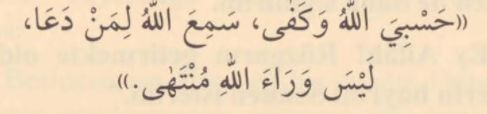 «حَسْبِيَ اللّٰهُ وَكَفَى، سَمِعَ اللّٰهُ لِمَنْ دَعَا،
لَيْسَ وَرَاءَ اللّٰهِ مُنْتَهٰى.»